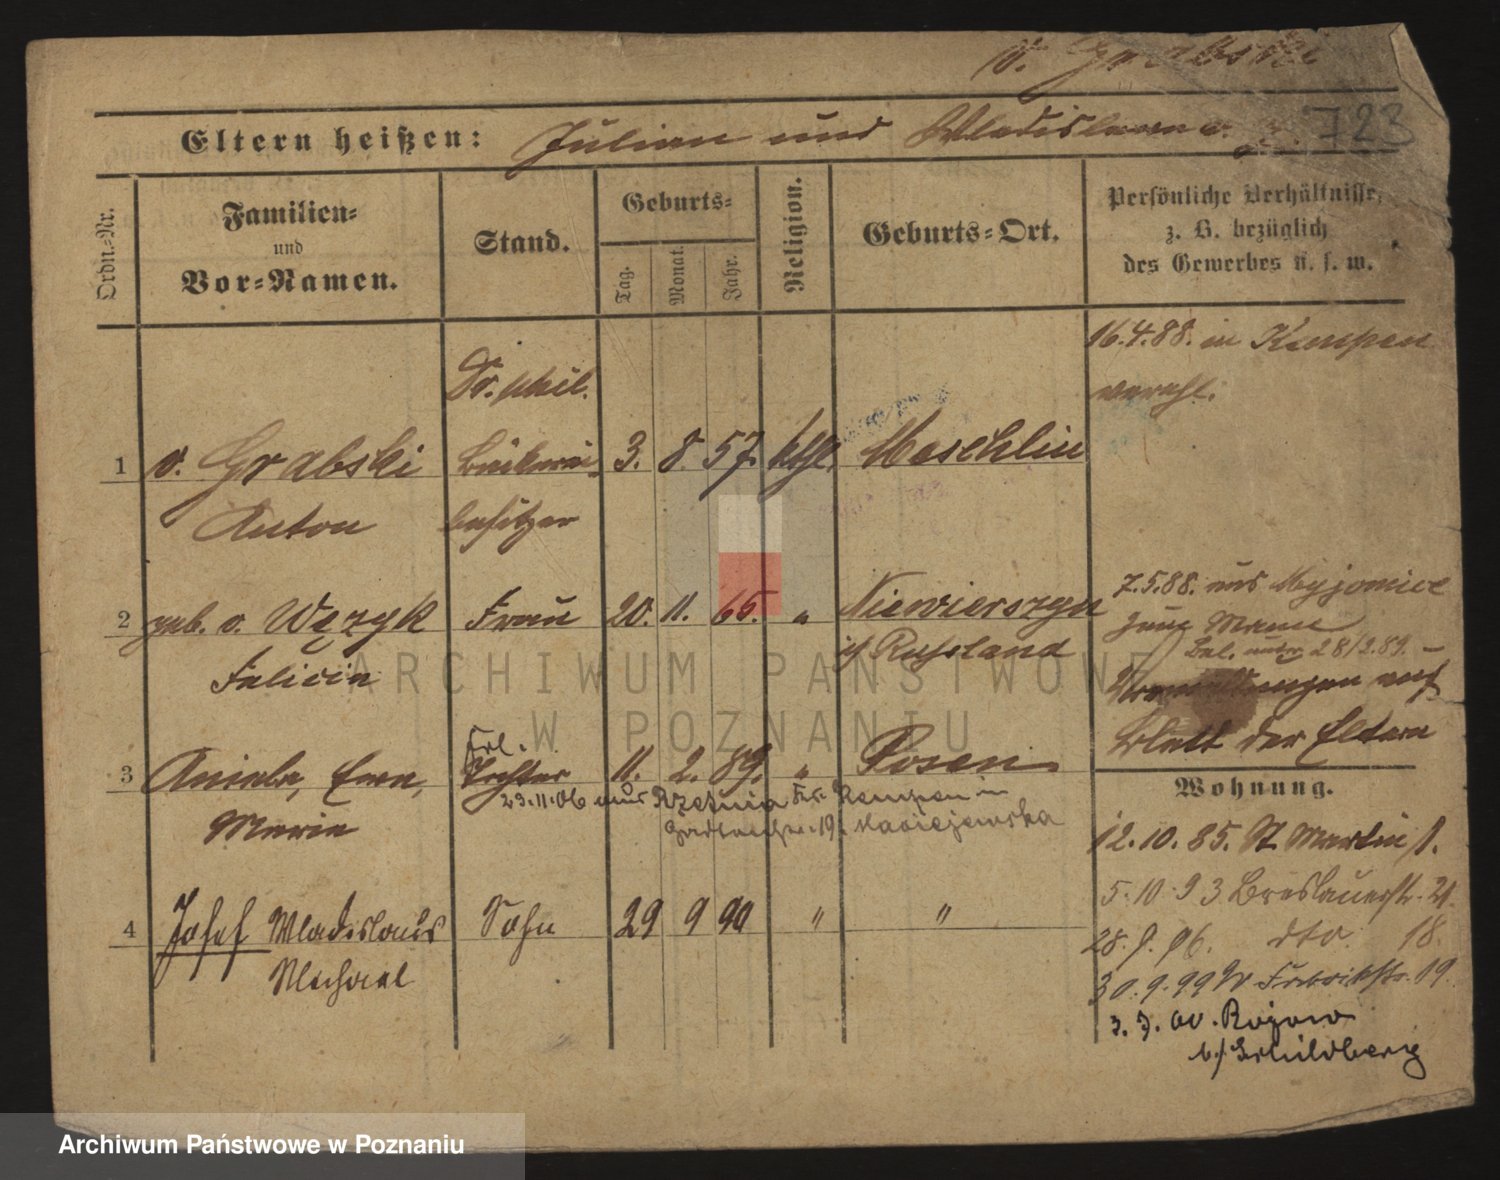 v. Grabski
723
Eltern heißen: Julian und Wladislawa v.
Ordn.-Nr.
Familien-
und
Vor-Namen.
Stand.
Geburts-
Tag.
Monat.
Jahr.
Religion.
Geburts-Ort.
Persönliche Verhältnisse,
z. B. bezüglich
des Gewerbes u. s. w.
16.4.88. in Kempen
vereht.
Dr. phil.
1 v. Grabski Bäckerei- 3. 8. 57. kthl. Moschlin
Anton besitzer
7.5.88. aus Myjomice
2 geb. v. Wężyk Frau 20. 11. 65. " Niewierszyn
zum Manne
Felicia i/ Russland
Bel. 28/2.89.
auf
Blatt der Eltern
Frl.
3 Aniela, Ewa, Tochter 11. 2. 89. " Posen
Maria
23.11.06 aus Rzetnia Kr. Kempen in
19. Maciejewska
4 Josef Wladislaus Sohn 29 9 90 " "
Michael
Wohnung.
12.10.85. St Martin 1.
5.10.93 Breslauerstr. 21.
28.9.96. dto. 18.
30.9.99 19.
3.7.00. Rojow
b/ Schildberg
ARCHIWUM PAŃSTWOWE
W POZNANIU
Archiwum Państwowe w Poznaniu